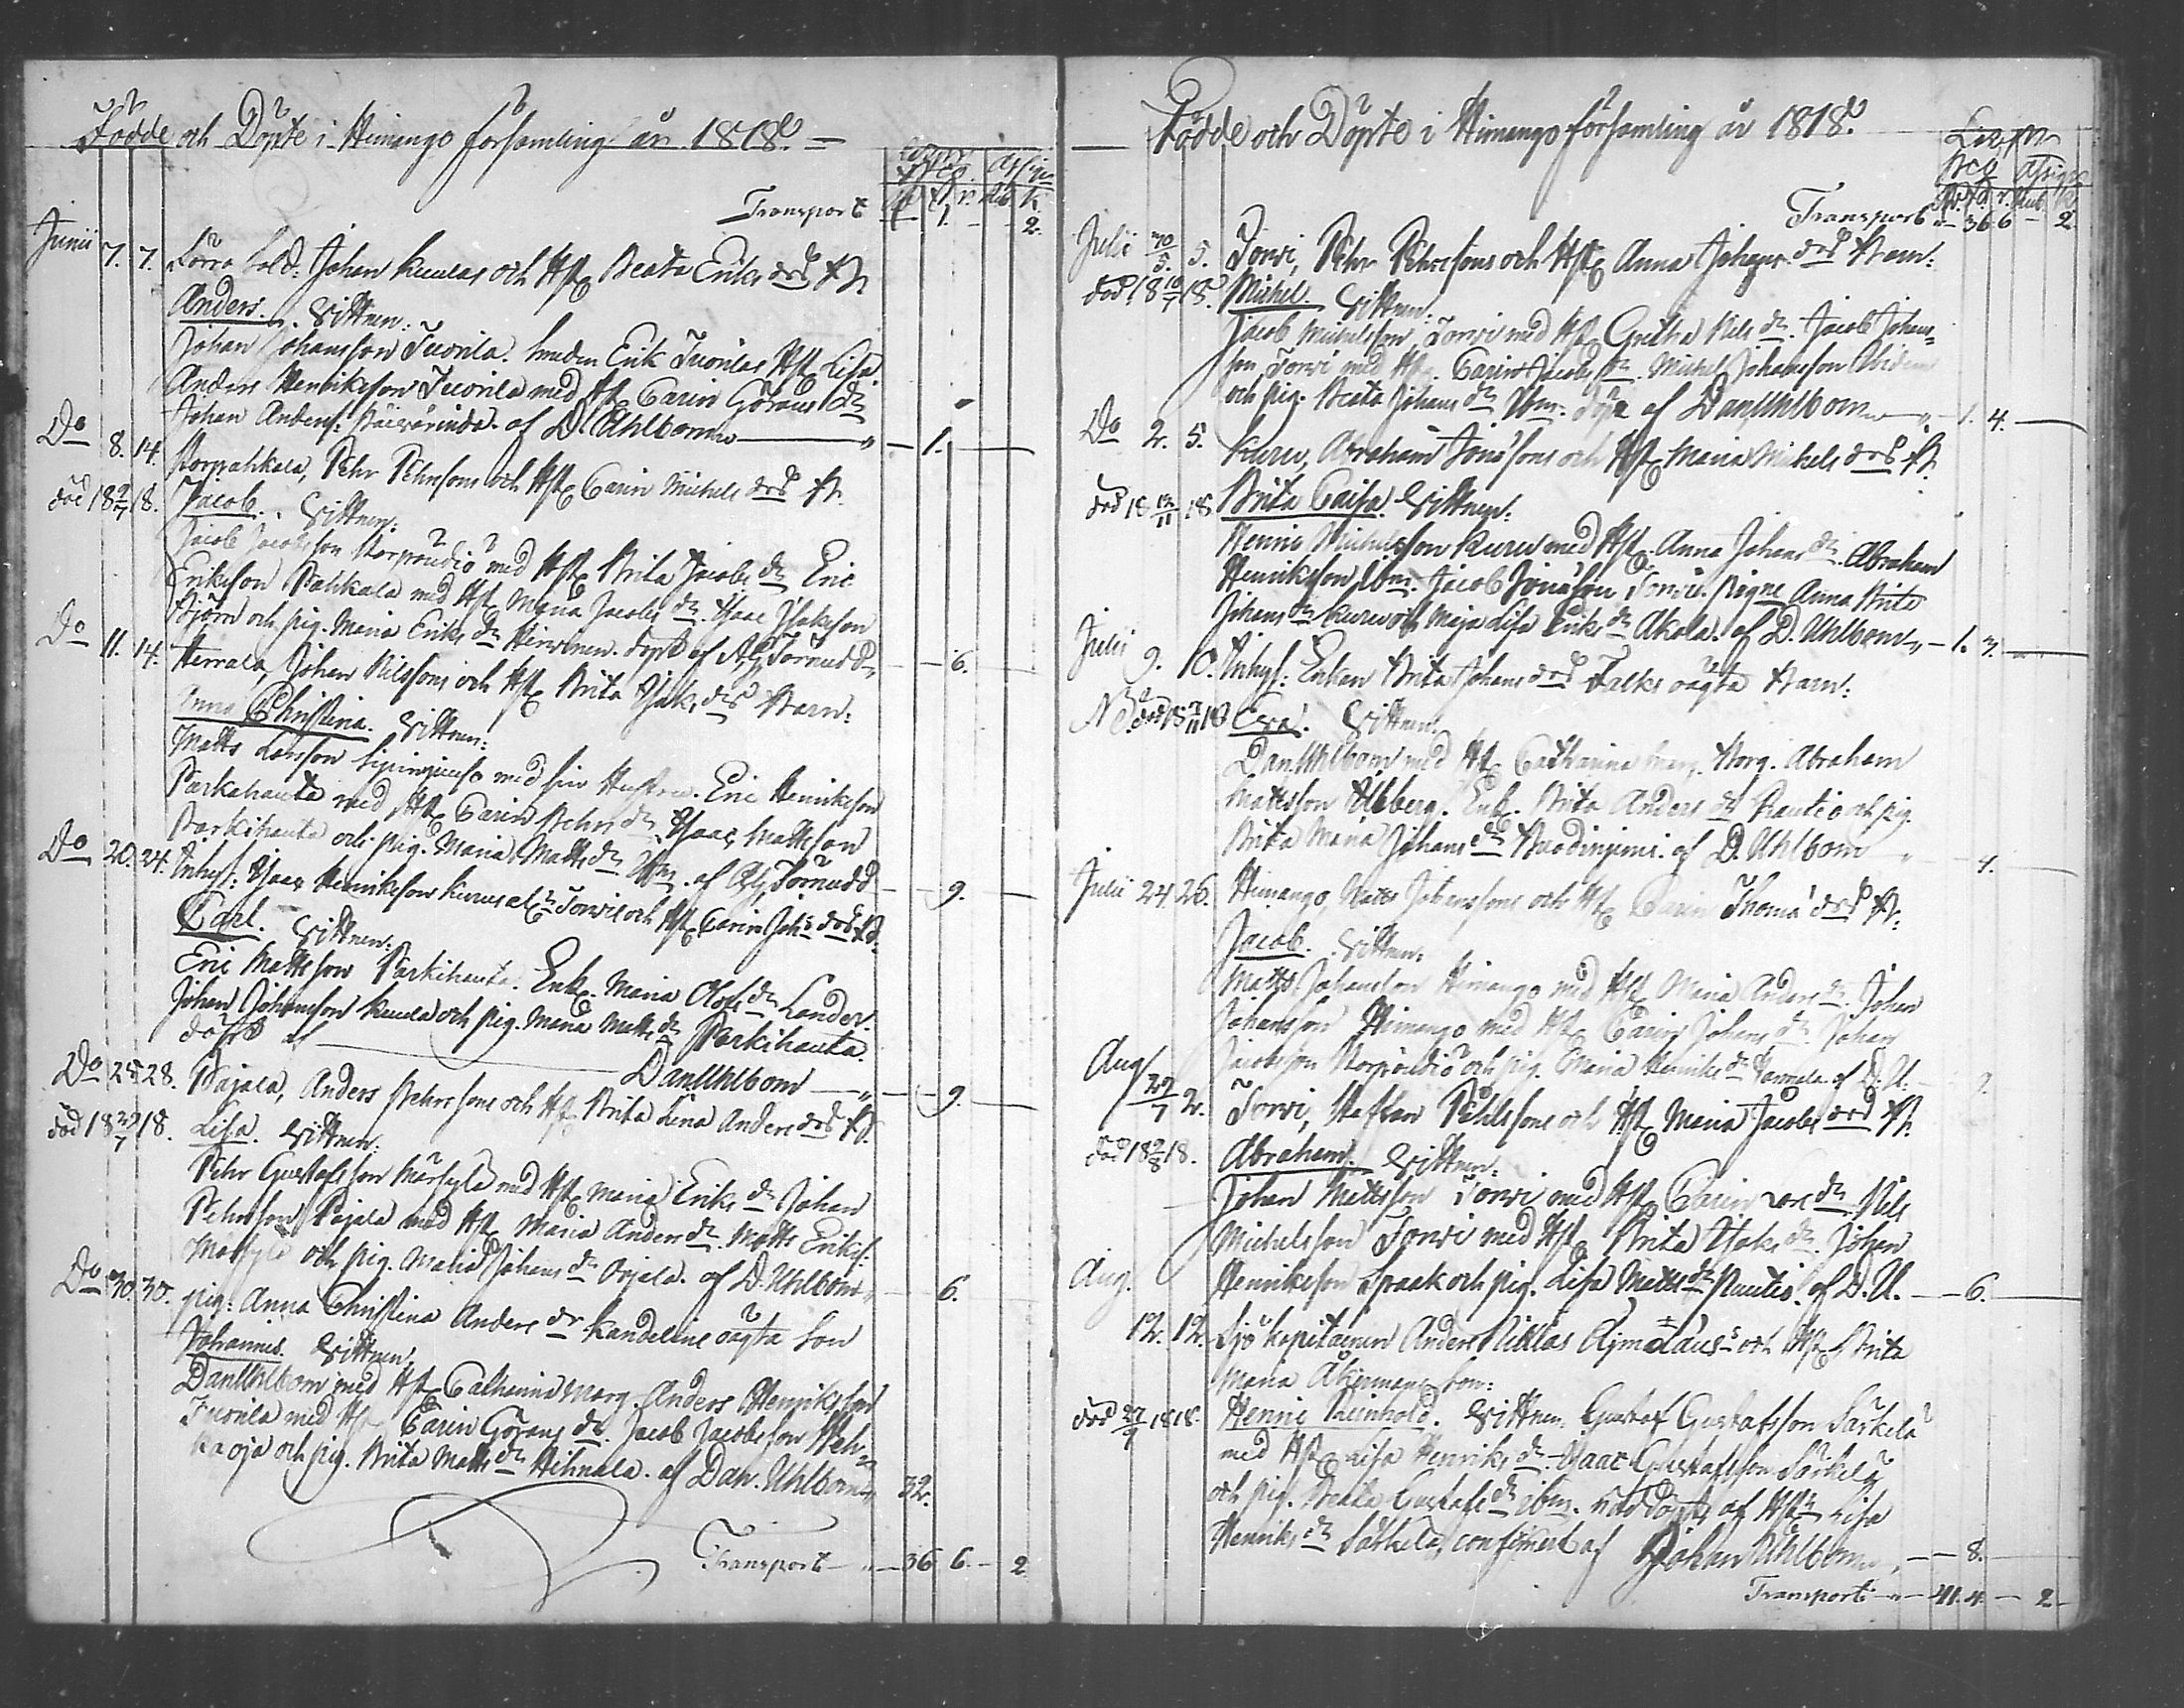 Födde och Döpte i Himango församling år 1818. —
Transport 1. 2.
Junii 7. 7. Förra Sold: Johan Kuulas och Hst Beata Eriks drs B.
Anders. Vittnen:
Johan Johansson Tuorila. Smeden Erik Tuorilas Hst Lisa.
Anders Henriksson Tuorila med Hst Carin Görans dr
Johan Anders: af D. Uhlbom — 1.
Do 8. 14. Porpahkala, Pehr Pehrssons och Hst Carin Michels drs B.
död 18 2/7 18. Jacob. Vittnen:
Jacob Jacobsson Korpsudiö med Hst Brita Jacobs dr Eric
Eriksson Pahkala med Hst Maria Jacobs dr. Isaac Isaksson
Björn och pig. Maria Eriks dr Hirvinen. Döpt af Törnudd — 6.
Do 11. 14. Herrala, Johan Nilssons och Hst Brita Isaks drs Barn:
Anna Christina. Vittnen:
Matts Larsson med sin Hustru. Eric Henriksson
Parkihauta med Hst Carin Pehrs dr Isaac Mattsson
Parkihauta och pig. Maria Matts dr Ibm. af Törnudd — 9.
Do 20. 24. Inhys: Isaac Henriksson Kurus och Hst Carin Joh: drs B.
Carl. Vittnen:
Eric Mattsson Parkihauta. Enk. Maria Olofs dr Lander.
Johan Johansson Kuula och pig. Maria Matts dr Parkihauta.
döpt af Dan Uhlbom — 9.
Do 25 28. Pajala, Anders Pehrssons och Hst Brita Lena Anders drs B.
död 18 29/7 18. Lisa. Vittnen:
Pehr Gustafsson Märsylä med Hst Maria Eriks dr Johan
Pehrsson Pajala med Hst Maria Anders dr. Matts Eriks:
och pig. Maria Johans dr Orjala. af D. Uhlbom — 6.
Do 30. 30. pig: Anna Christina Anders dr Kandelins oägta Son
Johannes. Vittnen:
Dan Uhlbom med Hst Catharina Marg. Anders Henriksson
Tuorila med Hst Carin Görans dr. Jacob Jacobsson
kaoja och pig. Brita Matts dr Hihnala. af Dan. Uhlbom 32.
Transport — 36 6. — 2
Födde och Döpte i Himango församling år 1818.
Transport — 36 6 — 2.
Julii 30/5. 5. Torvi, Pehr Pehrssons och Hst Anna Johans drs Barn:
död 18 10/7 18. Michel. Vittnen:
Jacob Michelsson, Torvi med Hst Gretha Nils dr. Jacob Johans-
son Torvi med Hst. Carin Jacobs dr. Michel Johansson
och pig. Beata Johans dr Ibm. Döpt af Dan Uhlbom — 1. 4. —
Do 2. 5. Kuru, Abraham Jonæsons och Hst Maria Michels drs B.
död 18 12/11 18 Brita Caisa. Vittnen:
Henric Michelsson Kuru med Hst. Anna Johans dr. Abraham
Henriksson Ibm. Jacob Jonæson Torvi. Pigne Anna Brita
Johans dr Kuru och Maja Lisa Eriks dr Akola. af D. Uhlbom — 1. 3. —
Julii 9. 10. Inhys: Enkan Brita Johans drs Falks oägta Barn:
Eva. Vittnen:
Dan Uhlbom med Hst Catharina Marg. Borg. Abraham
Mattsson Uhlberg. Enk. Brita Anders dr Rautio och pig.
Brita Maria Johans dr af D. Uhlbom — 4.
Julii 24 26. Himango, Matts Johanssons och Hst Carin Thomæ drs B.
Jacob. Vittnen:
Matts Johansson Himango med Hst Maria Anders dr. Johan
Johansson Himango med Hst Carin Johans dr Johan
Jacobsson och pig. Maria Henriks dr af D. U.
Aug 29/7 2. Torvi, Staffan Pehrssons och Hst Maria Jacobs drs B.
död 18 2/8 18. Abraham. Vittnen:
Johan Mattsson Torvi med Hst Carin dr. Nils
Michelsson Torvi med Hst Brita Isaks dr. Johan
Henriksson Spaak och pig. Lisa Matts dr Rautio. af D. U. — 6.
Aug. 12. 12. Sjö kapitainen Anders Niklas Ajmalæus och Hst Brita
Maria Åkermans Son:
död 27/9 1818. Henric Reinhold. Vittnen. Gustaf Gustafsson Särkelä
med Hst Lisa Henriks dr. Isaac Gustafsson Särkelä
och pig. Beata Gustafs dr Ibm. Nöddöpt af Hstn Lisa
Henriks dr Särkelä, confirmert af Johan Uhlbom — 8.
Transport — 41. 4. — 2